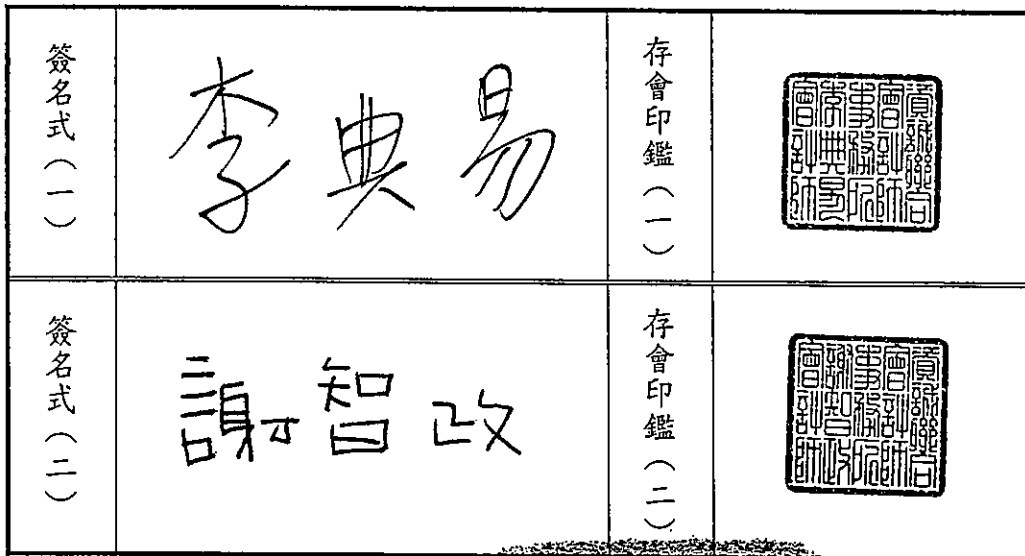 簽名式(一)
李典易
存會印鑑(一)
資誠聯合
會計師
事務所
李典易
會計師
簽名式(二)
謝智政
存會印鑑(二)
資誠聯合
會計師
事務所
謝智政
會計師